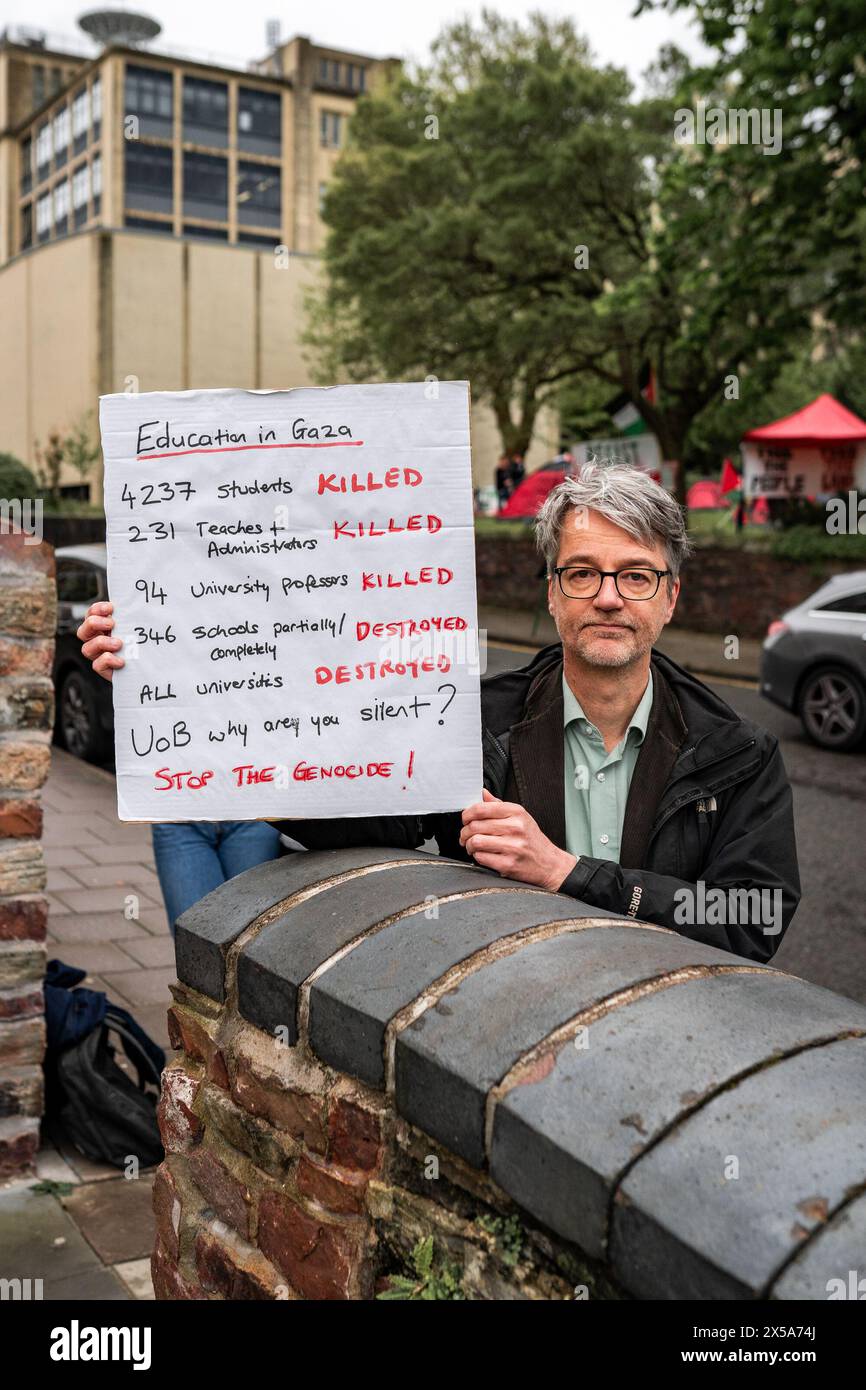 Education in Gaza
4237 students KILLED
231 Teaches + KILLED
Administrators
94 University professors KILLED
346 schools partially/ DESTROYED
completely
ALL universities DESTROYED
UoB why are you silent?
STOP THE GENOCIDE!
THE PEOPLE
GORE-TEX
alamy
Image ID: 2X5A74J
www.alamy.com